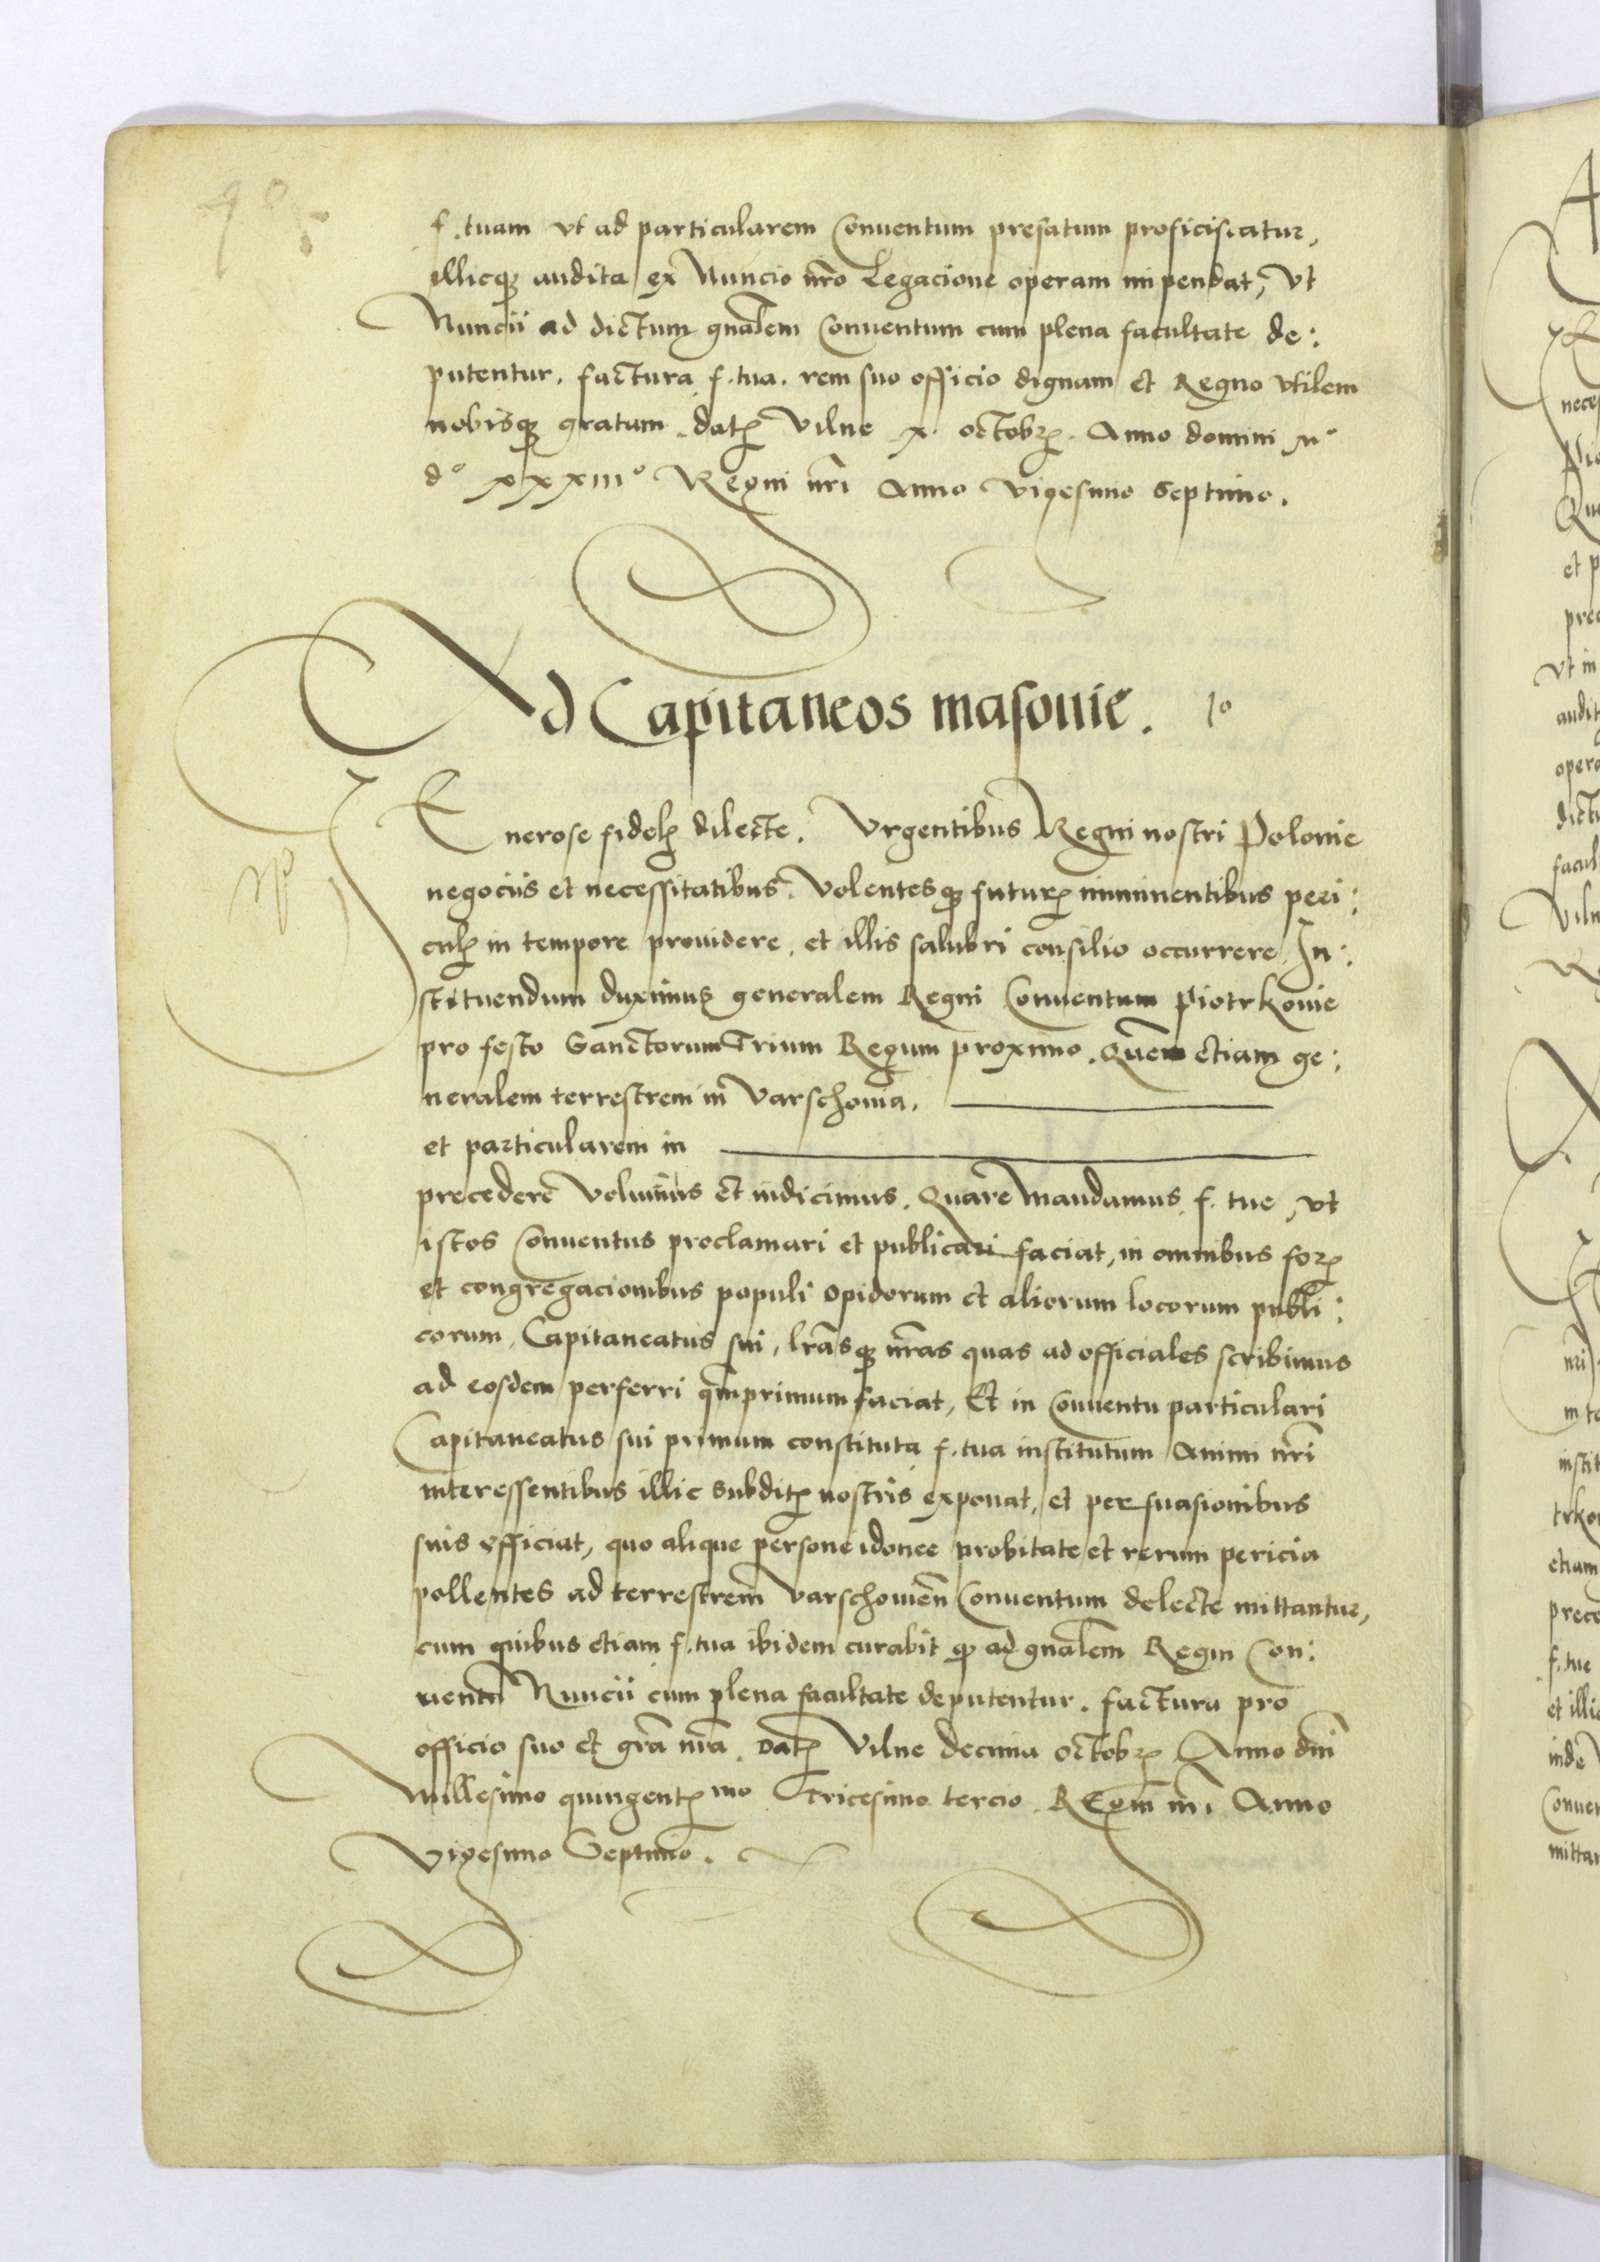 40
f. tuam vt ad particularem Conuentum prefatum proficiscatur,
illicqꝫ audita ex Nuncio nr̃o Legacione operam impendat, Vt
Nuncii ad dictum gnãlem Conuentum cum plena facultate de:
putentur. factura f. tua. rem suo officio dignam et Regno vtilem
nobisqꝫ gratum. datꝫ Vilne x. octobrꝫ. Anno domini Mº
dº xxxiiiº Regni nr̃i Anno Vigesimo Septimo.
Ad Capitaneos masouie. 1º
Enerose fidelꝫ dilecte. Vrgentibus Regni nostri Polonie
negociis et necessitatibus. Volentesqꝫ futurꝫ imminentibus peri:
culꝫ in tempore prouidere, et illis salubri consilio occurrere, In:
stituendum duximus generalem Regni Conuentum Piotrkouie
pro festo Sanctorum Trium Regum proximo. Quem etiam ge:
neralem terrestrem in Varschouia.
et particularem in
precedere Volumus et indicimus. Quare mandamus f. tue, vt
istos Conuentus proclamari et publicari faciat, in omnibus forꝫ
et congregacionibus populi opidorum et aliorum locorum publi:
corum, Capitaneatus sui, lr̃asqꝫ nr̃as quas ad officiales scribimus
ad eosdem perferri qm̃primum faciat, Et in Conuentu particulari
Capitaneatus sui primum constituta f. tua institutum Animi nr̃i
interessentibus illic subditꝫ nostris exponat, et persuasionibus
suis efficiat, quo alique persone idonee probitate et rerum pericia
pollentes ad terrestrem Varschouien̄ Conuentum delecte mittantur,
cum quibus etiam f. tua ibidem curabit qꝫ ad gnãlem Regni Con:
uentũ Nuncii cum plena facultate deputentur. factura pro
officio suo et gr̃a nr̃a. Datꝫ Vilne decima octobrꝫ Anno dñi
Millesimo quingentꝫmo Tricesimo tercio. Regni nr̃i Anno
Vigesimo Septimo.